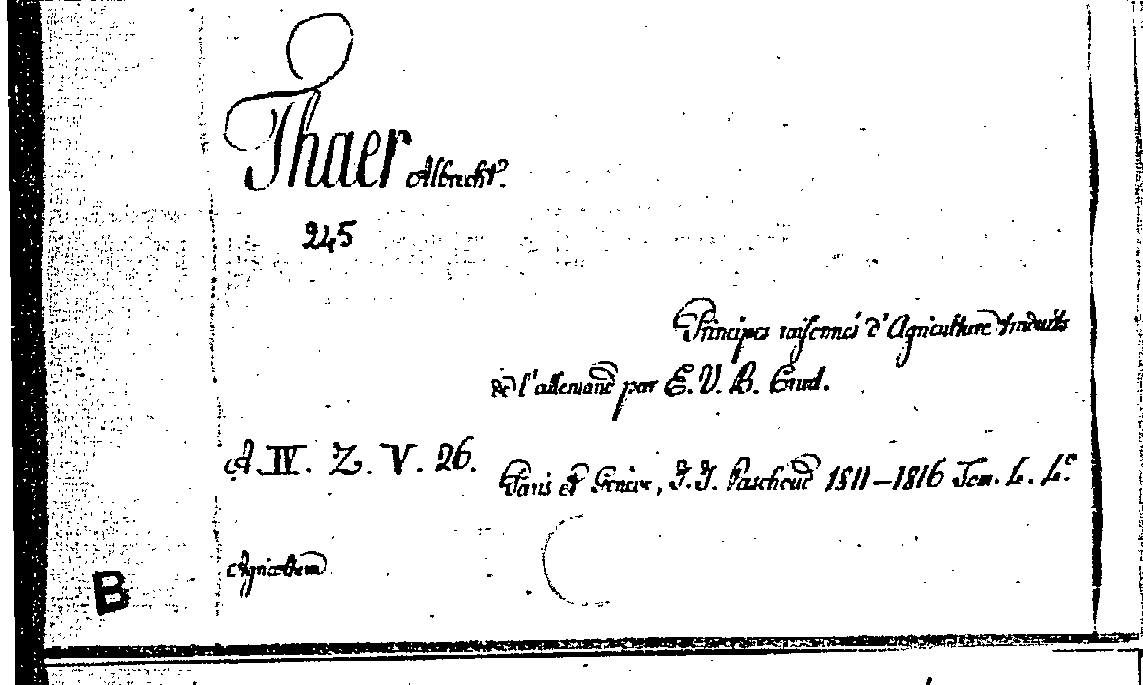 Thaer Albrecht.
245
Principes raisonnés d'Agriculture traduits
de l'allemand par E. V. B. Crud.
A. IV. Z. V. 26.
Paris et Genève, J. J. Paschoud 1811–1816 Tom.
Agricoltura
B